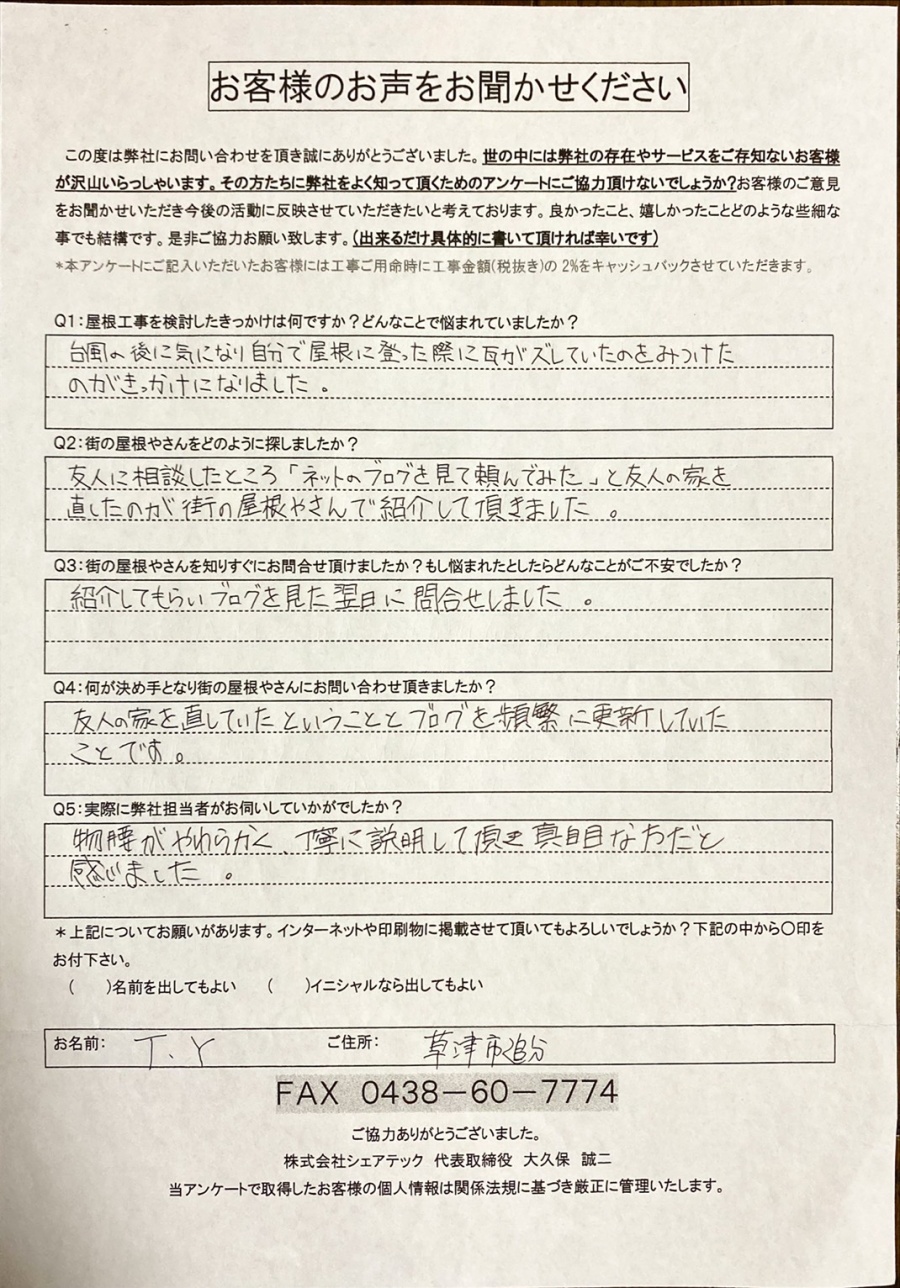 お客様のお声をお聞かせください
この度は弊社にお問い合わせを頂き誠にありがとうございました。世の中には弊社の存在やサービスをご存知ないお客様
が沢山いらっしゃいます。その方たちに弊社をよく知って頂くためのアンケートにご協力頂けないでしょうか?お客様のご意見
をお聞かせいただき今後の活動に反映させていただきたいと考えております。良かったこと、嬉しかったことどのような些細な
事でも結構です。是非ご協力お願い致します。(出来るだけ具体的に書いて頂ければ幸いです)
*本アンケートにご記入いただいたお客様には工事ご用命時に工事金額(税抜き)の 2%をキャッシュバックさせていただきます。
Q1:屋根工事を検討したきっかけは何ですか?どんなことで悩まれていましたか?
台風の後に気になり自分で屋根に登った際に瓦がズレていたのをみつけた
のがきっかけになりました。
Q2:街の屋根やさんをどのように探しましたか?
友人に相談したところ「ネットのブログを見て頼んでみた」と友人の家を
直したのが街の屋根やさんで紹介して頂きました。
Q3:街の屋根やさんを知りすぐにお問合せ頂けましたか?もし悩まれたとしたらどんなことがご不安でしたか?
紹介してもらいブログを見た翌日に問合せしました。
Q4:何が決め手となり街の屋根やさんにお問い合わせ頂きましたか?
友人の家を直していたということとブログを頻繁に更新していた
ことです。
Q5:実際に弊社担当者がお伺いしていかがでしたか?
物腰がやわらかく、丁寧に説明して頂き真面目な方だと
感じました。
*上記についてお願いがあります。インターネットや印刷物に掲載させて頂いてもよろしいでしょうか?下記の中から〇印を
お付下さい。
(　　)名前を出してもよい　　(　　)イニシャルなら出してもよい
お名前: T.Y ご住所: 草津市追分
FAX 0438-60-7774
ご協力ありがとうございました。
株式会社シェアテック 代表取締役 大久保 誠二
当アンケートで取得したお客様の個人情報は関係法規に基づき厳正に管理いたします。